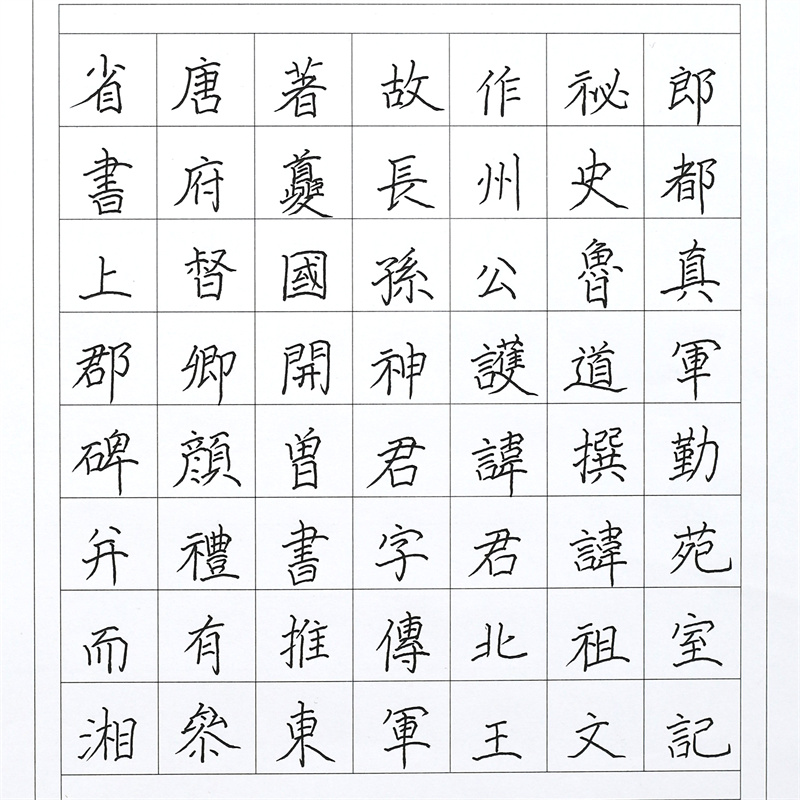 省唐著故作祕郎
書府夔長州史都
上督國孫公魯真
郡卿開神護道軍
碑顏曾君諱撰勤
并禮書字君諱苑
而有推傳北祖室
湘參東軍王文記